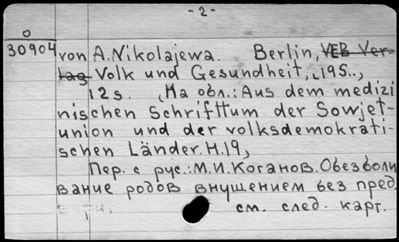 - 2 -
0
30904 von A. Nikolajewa. Berlin, VEB Ver-
lag Volk und Gesundheit, [195..,
12 s. [На обл.: Aus dem medizi
nischen Schrifttum der Sowjet-
union und der volksdemokrati-
schen Länder. H.19,
Пер. с рус.: М.И. Коганов. Обезболи
вание родов внушением без пред
см. след. карт.